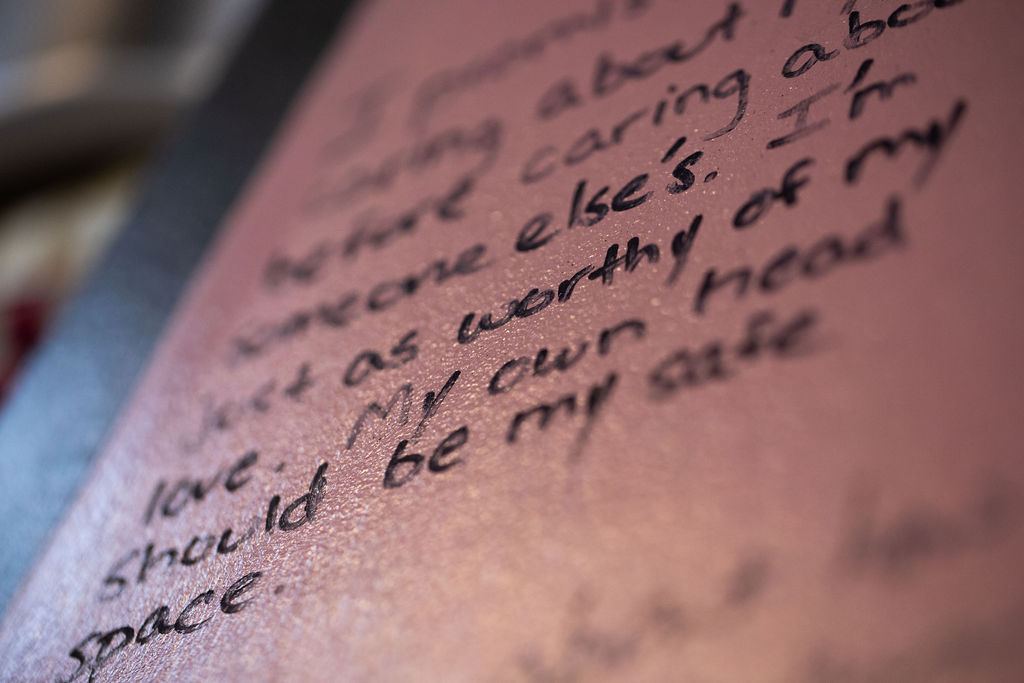 I
caring about
before caring about
someone else's. I'm
just as worthy of my
love. My own head
should be my safe
space.